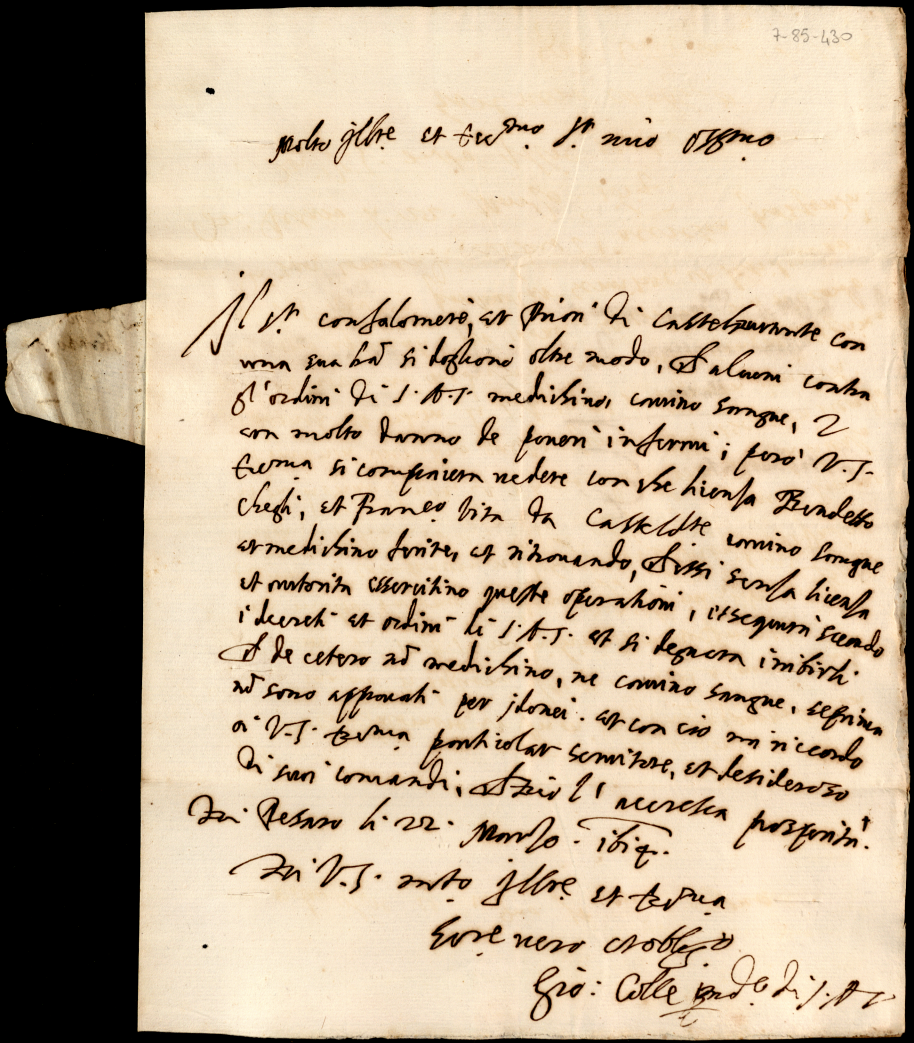 7-85-430
Molto Ill.re et Ecc.mo S.r mio oss.mo
Il S.r confalonieri, et Priori di Casteldurante con
una sua si doglono oltre modo, che alcuni contra
gl'ordini di S.A.S. medichino, cavino sangue,
con molto danno de poveri infermi; però V.S.
Ecc.ma si compiacera vedere con che licenza Benedetto
et Franc.o Vita da Casteldte cavino sangue
et medichino ferite, et ritrovando, che essi senza licenza
et autorita essercitino queste operationi, essequirà secondo
i decreti et ordini di S.A.S. et si degnera inibirli
che de cetero nō medichino, ne cavino sangue, se prima
nō sono approvati per idonei. et con cio mi ricordo
di V.S. Ecc.ma particolar servitore, et desideroso
di suoi comandi, che Dio l' accresca prosperità.
Di Pesaro li 22. Marzo.
Di V.S. molto Ill.re et Ecc.ma
Ser.re vero et obblig.o
Gio: Colle di S.A.S.